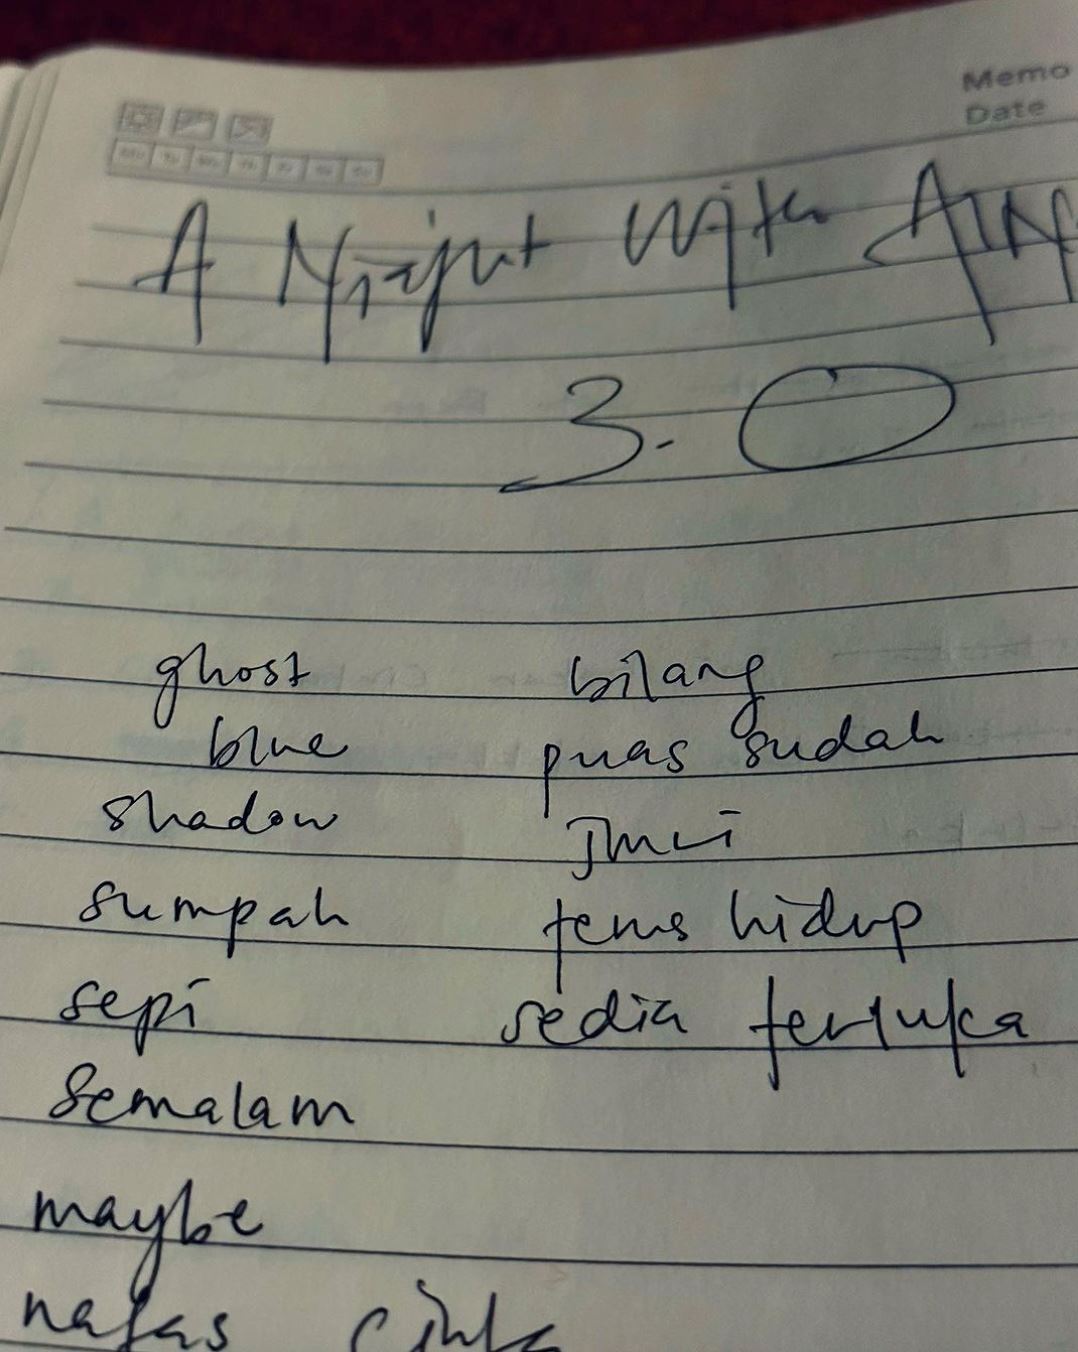 Memo
Date
A Night with AIN
3.0
ghost bilang
blue puas sudah
shadow
sumpah terus hidup
sepi sedia terluka
semalam
maybe
nafas cinta